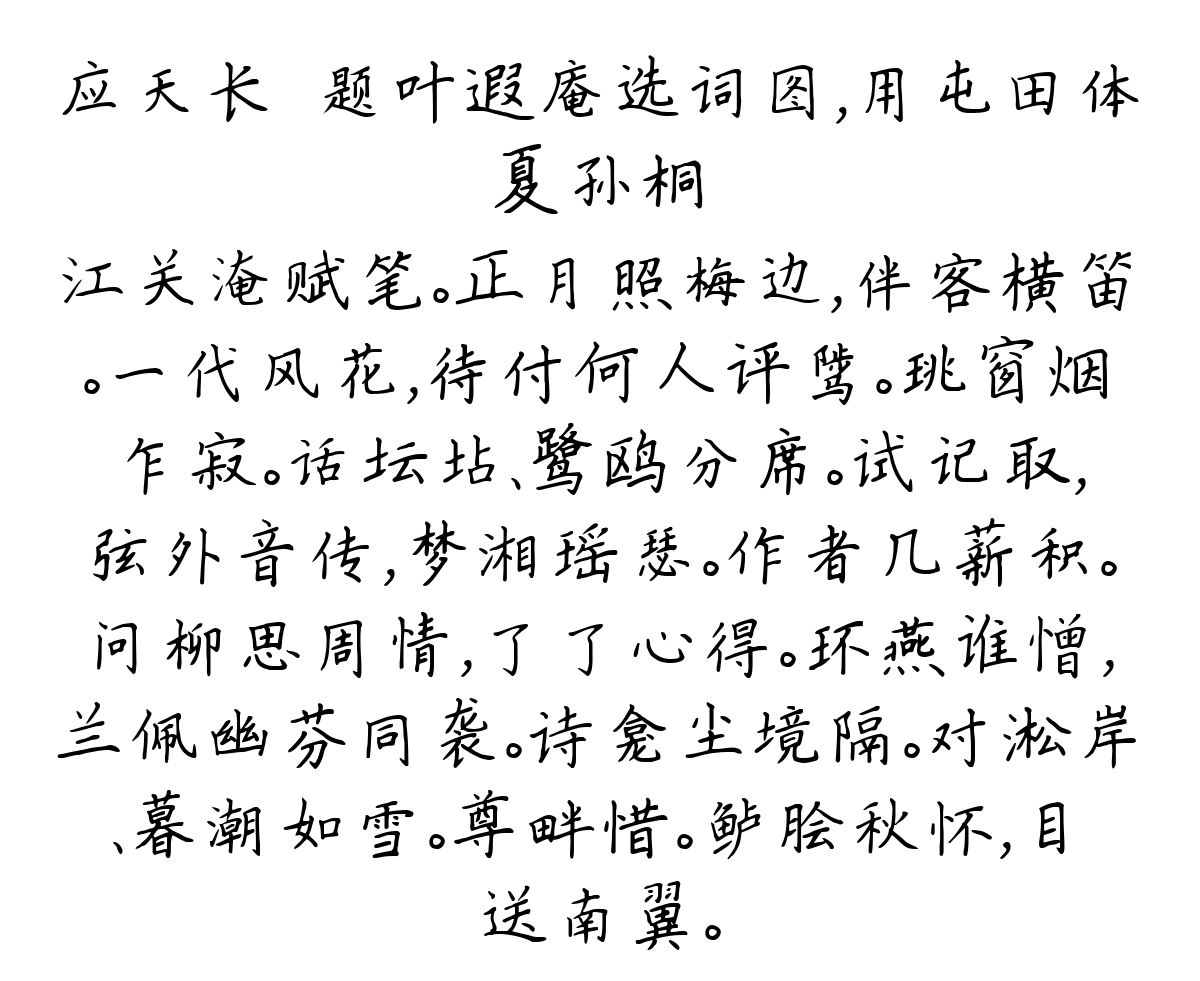 应天长 题叶遐庵选词图,用屯田体
夏孙桐
江关淹赋笔。正月照梅边,伴客横笛
。一代风花,待付何人评骘。珧窗烟
乍寂。话坛坫、鹭鸥分席。试记取,
弦外音传,梦湘瑶瑟。作者几薪积。
问柳思周情,了了心得。环燕谁憎,
兰佩幽芬同袭。诗龛尘境隔。对淞岸
、暮潮如雪。尊畔惜。鲈脍秋怀,目
送南翼。